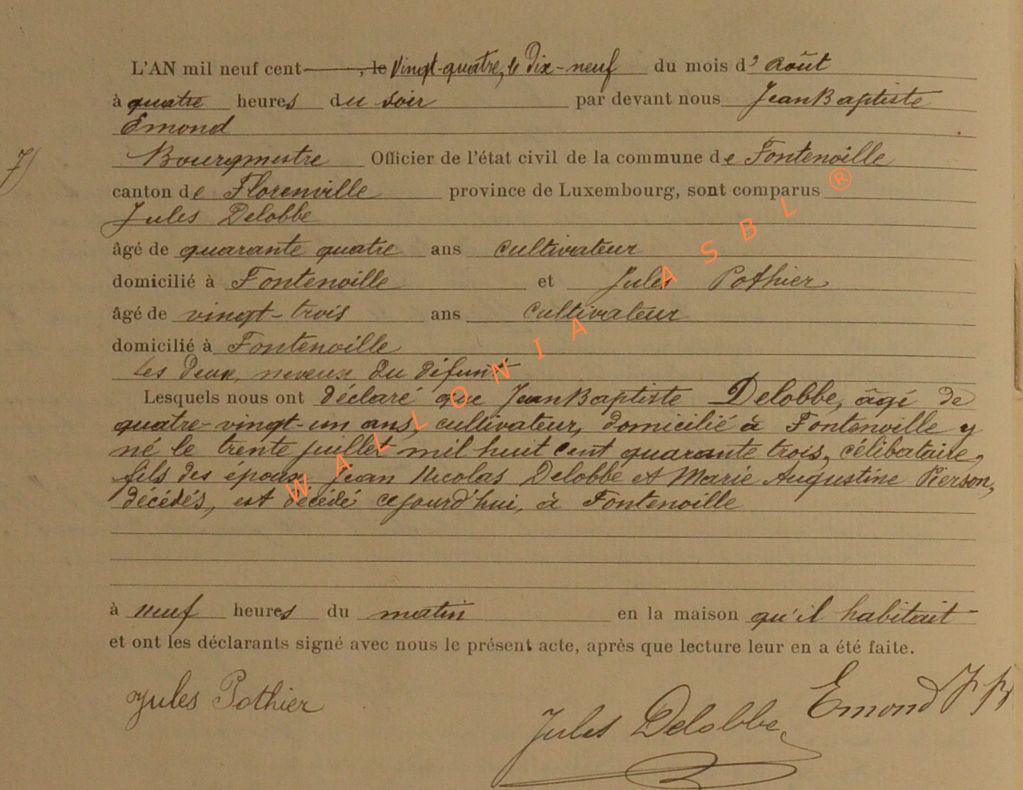 L'AN mil neuf cent ~~, le~~ Vingt-quatre, le Dix-neuf du mois d'Août
à quatre heures du soir par devant nous Jean Baptiste
Emond
7)
Bourgmestre Officier de l'état civil de la commune de Fontenoille
canton de Florenville province de Luxembourg, sont comparus
Jules Delobbe
âgé de quarante quatre ans cultivateur
domicilié à Fontenoille et Jules Pothier
âgé de vingt-trois ans cultivateur
domicilié à Fontenoille
les deux, neveux du défunt
Lesquels nous ont déclaré que Jean Baptiste Delobbe, âgé de
quatre-vingt-un ans, cultivateur, domicilié à Fontenoille y
né le trente juillet mil huit cent quarante trois, célibataire,
fils des époux Jean Nicolas Delobbe et Marie Augustine Pierson,
décédés, est décédé cejourd'hui, à Fontenoille
à neuf heures du matin en la maison qu'il habitait
et ont les déclarants signé avec nous le présent acte, après que lecture leur en a été faite.
Jules Pothier
Jules Delobbe
Emond
WALLONIA ASBL ®